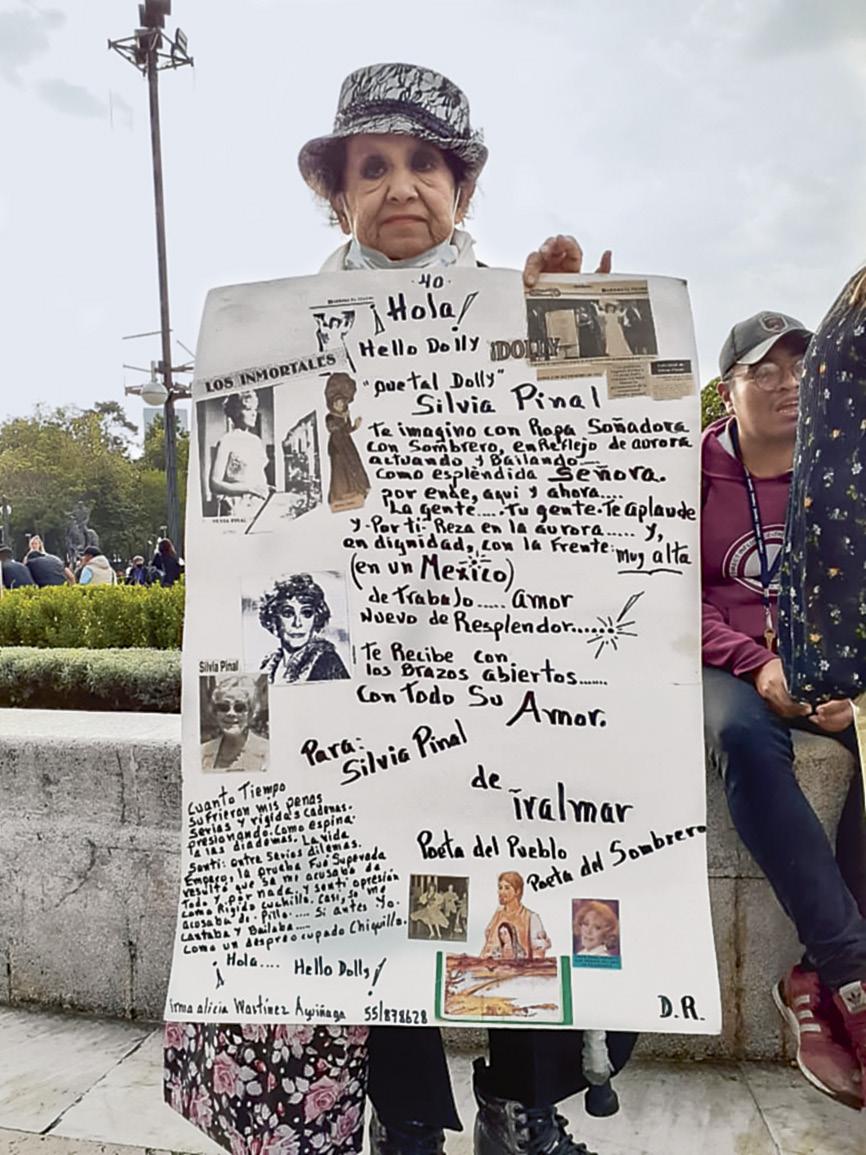 ·40·
¡Hola!
Hello Dolly
¡DOLLY
LOS INMORTALES
"quetal Dolly"
Silvia Pinal
Te imagino con Ropa Soñadora
con Sombrero, en Reflejo de aurora
actuando y Bailando....
Como esplèndida Señora.
por ende, aquì y ahora....
La gente.... Tu gente. Te aplaude
y. Por ti: Reza en la aurora..... y,
en dignidad, con la Frente: muy alta
(en un Mexico)
de Trabajo..... amor
Nuevo de Resplendor.....
Te Recibe con
los Brazos abiertos......
Con Todo Su Amor.
SILVIA PINAL
Silvia Pinal
Para:
Silvia Pinal
de
iralmar
Poeta del Pueblo
Poeta del Sombrero
Cuanto Tiempo
Sufrieron mis penas
Serias y rigidas cadenas.
presionando. Como espina.
Ta las diademas. La vida
Sentì: entre Serios dilemas.
Empero, la prueba Fuè Superada
resultò que se me acusaba de
Todo y por nada, y sentì opresiòn
como Rìgido cuchillo. Casi, se me
acusaba de: Pillo.... Si antes Yo.
Cantaba y Bailaba....
Como un despreocupado Chiquillo.
¡Hola.... Hello Dolly!
irma alicia Martìnez Ayiñaga 55/878628
D.R.